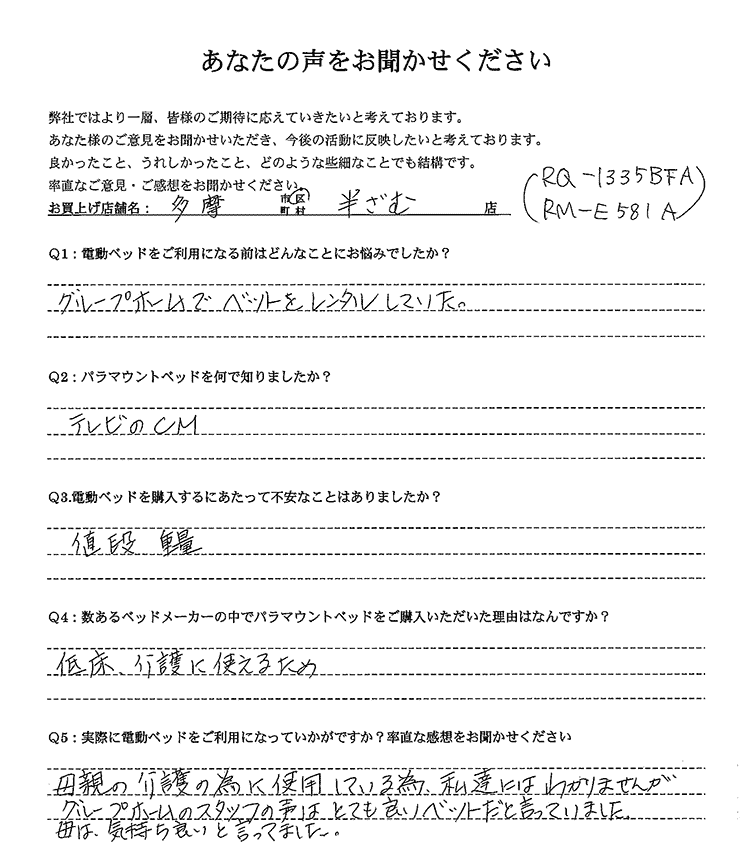 あなたの声をお聞かせください
弊社ではより一層、皆様のご期待に応えていきたいと考えております。
あなた様のご意見をお聞かせいただき、今後の活動に反映したいと考えております。
良かったこと、うれしかったこと、どのような些細なことでも結構です。
率直なご意見・ご感想をお聞かせください。
お買上げ店舗名: 多摩 市区町村 半ざむ 店 (RQ-1335BFA
RM-E581A)
Q1:電動ベッドをご利用になる前はどんなことにお悩みでしたか?
グループホームで ベットをレンタルしていた。
Q2:パラマウントベッドを何で知りましたか?
テレビのCM
Q3.電動ベッドを購入するにあたって不安なことはありましたか?
値段 重量
Q4:数あるベッドメーカーの中でパラマウントベッドをご購入いただいた理由はなんですか?
低床、介護に使えるため
Q5:実際に電動ベッドをご利用になっていかがですか?率直な感想をお聞かせください
母親の介護の為に使用している為、私達にはわかりませんが
グループホームのスタッフの声はとても良いベットだと言っていました。
母は、気持ち良いと言ってました。